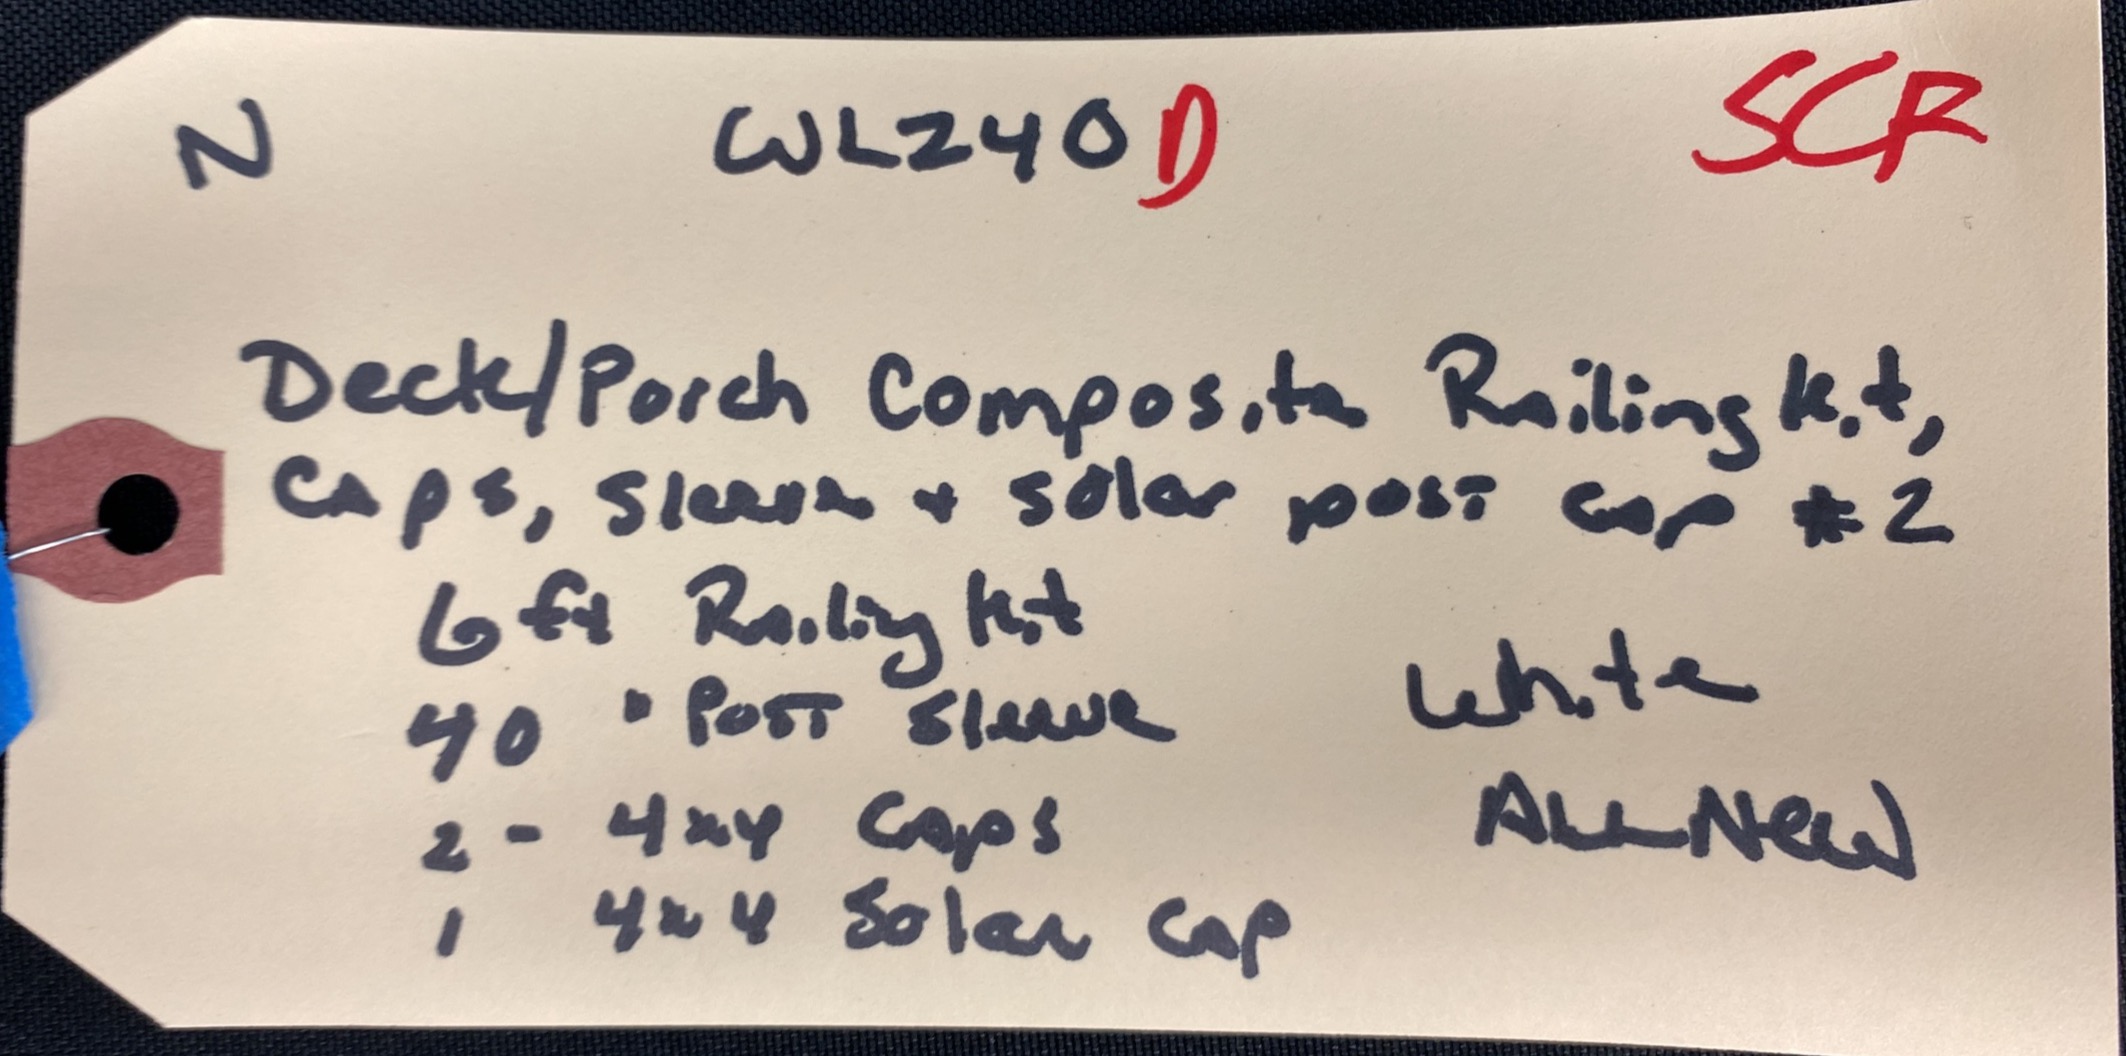 N WL240D SCR
Deck/Porch Composite Railing Kit,
Caps, Sleeve + Solar post cap #2
6 ft Railing Kit
40 " Post Sleeve White
2 - 4x4 Caps ALL New
1 4x4 Solar Cap